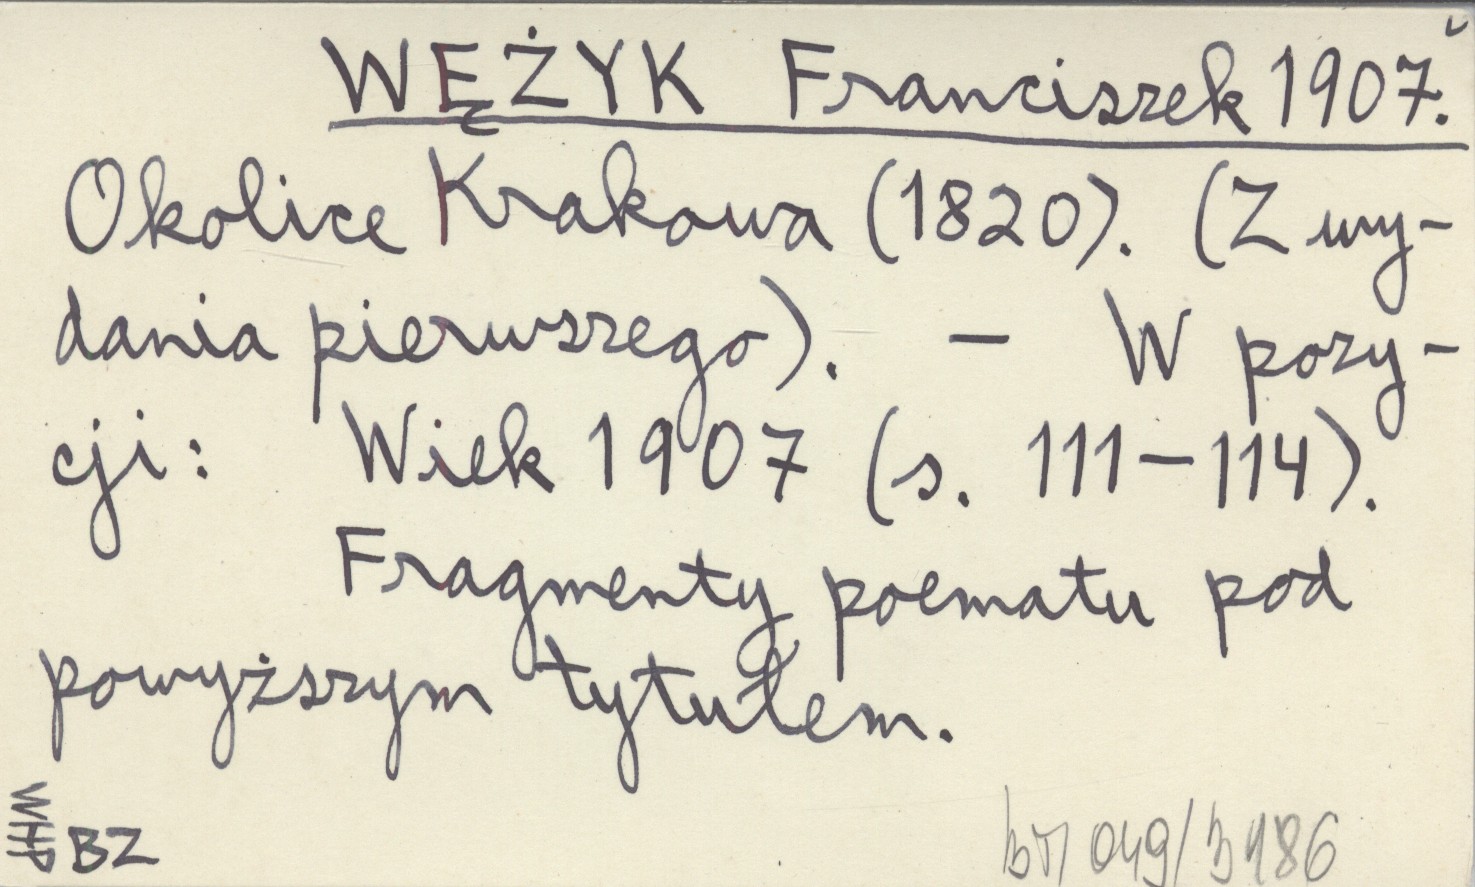 WĘŻYK Franciszek 1907.
Okolice Krakowa (1820). (Z wy-
dania pierwszego). - W pozy-
cji: Wiek 1907 (s. 111-114).
Fragmenty poematu pod
powyższym tytułem.
BZ
049/